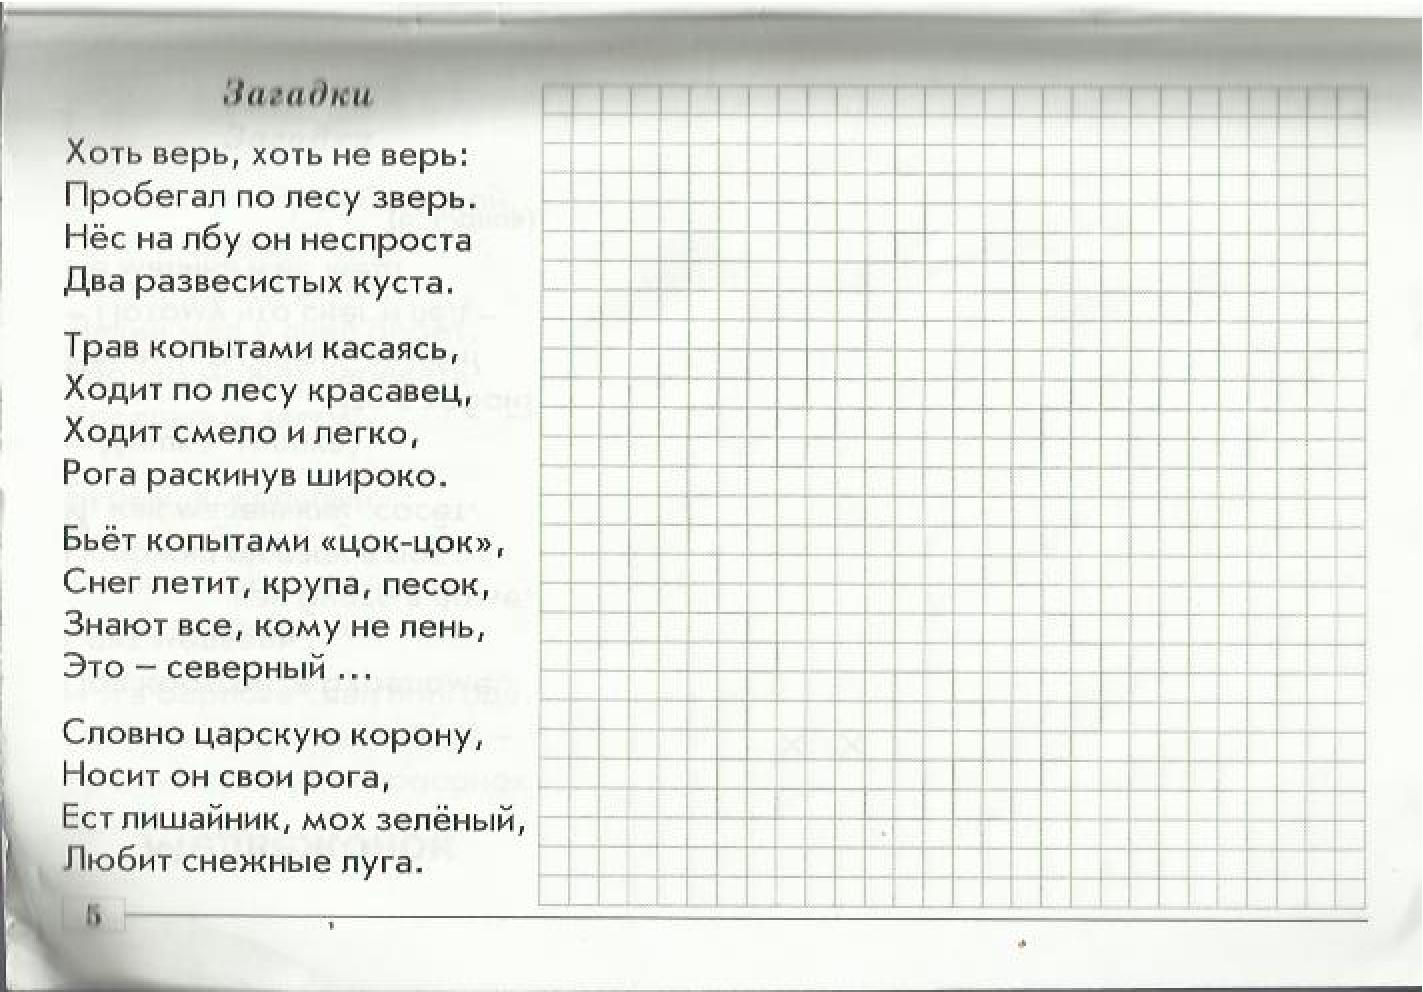 Загадки
Хоть верь, хоть не верь:
Пробегал по лесу зверь.
Нёс на лбу он неспроста
Два развесистых куста.
Трав копытами касаясь,
Ходит по лесу красавец,
Ходит смело и легко,
Рога раскинув широко.
Бьёт копытами «цок-цок»,
Снег летит, крупа, песок,
Знают все, кому не лень,
Это – северный ...
Словно царскую корону,
Носит он свои рога,
Ест лишайник, мох зелёный,
Любит снежные луга.
5